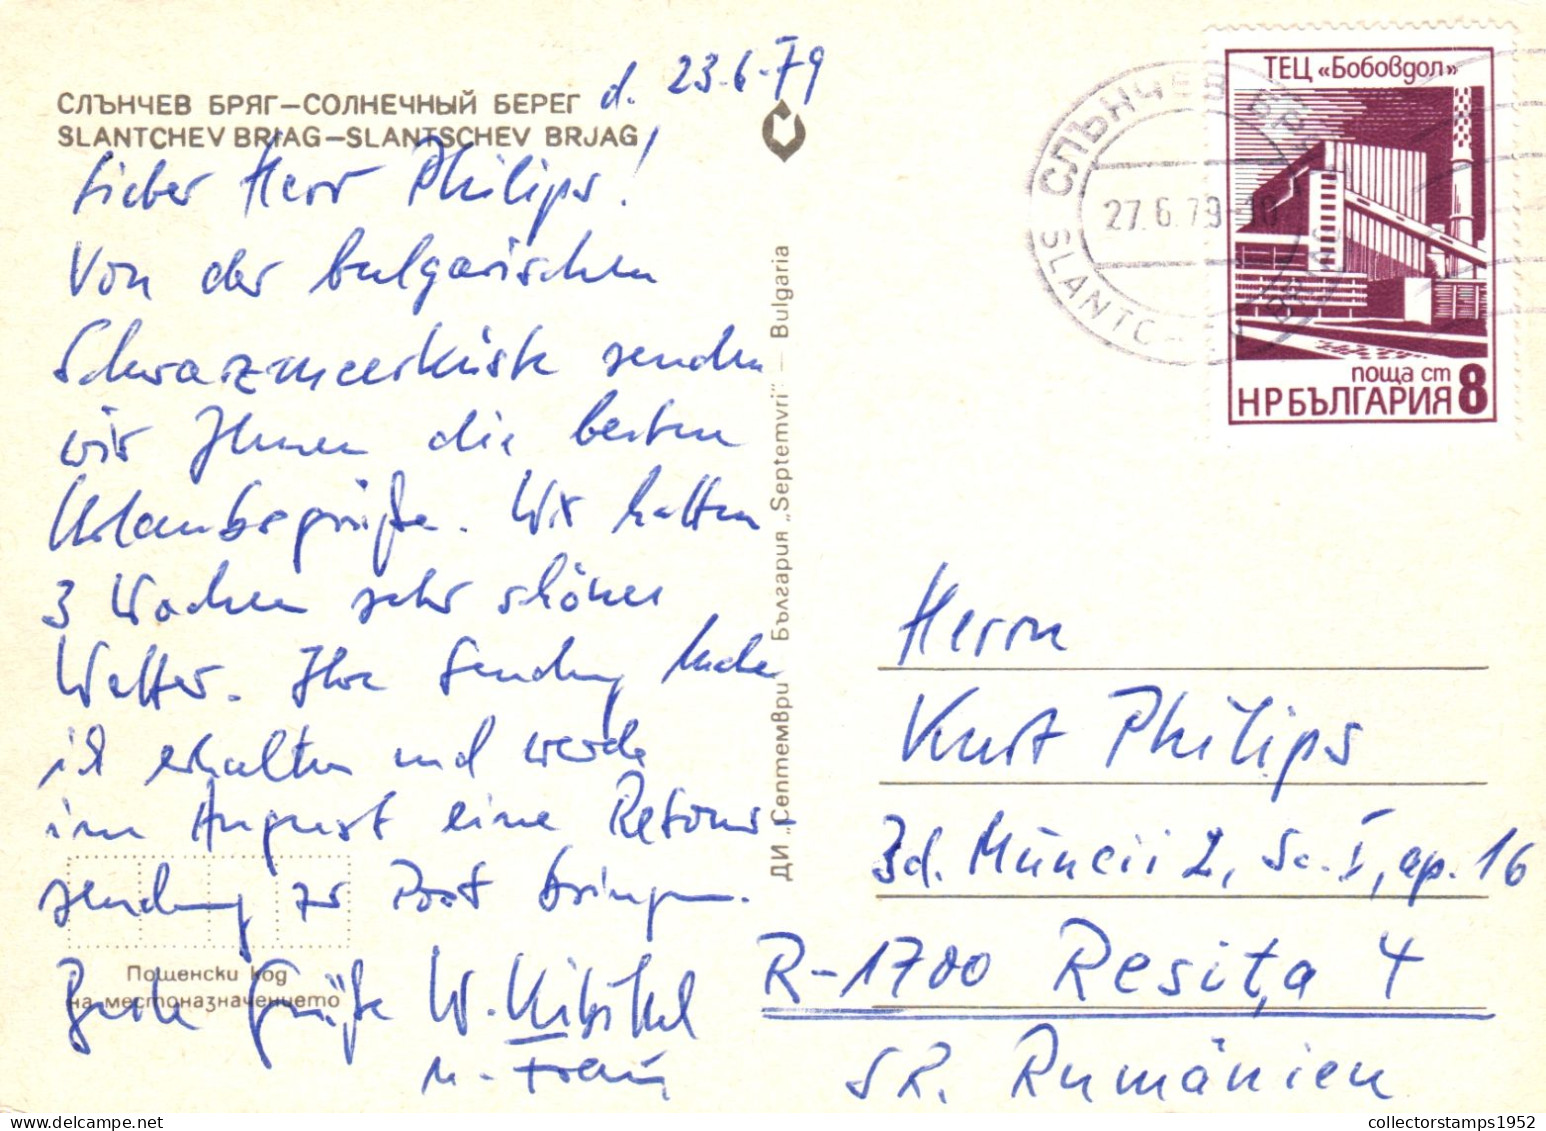 СЛЪНЧЕВ БРЯГ—СОЛНЕЧНЫЙ БЕРЕГ
SLANTCHEV BRIAG—SLANTSCHEV BRJAG
d. 23.6.79
Lieber Herr Philips!
Von der bulgarischen
Schwarzmeerküste senden
wir Ihnen die besten
Urlaubsgrüße. Wir hatten
3 Wochen sehr schönes
Wetter. Ihre Sendung habe
ich erhalten und werde
im August eine Retour-
sendung zur Post bringen.
Beste Grüße W.
u. Frau
Пощенски код
на местоназначението
ДИ „Септември" България „Septemvri" — Bulgaria
СЛЪНЧЕВ БР
27.6.79-10
SLANTC
ТЕЦ «Бобовдол»
поща ст 8
НРБЪЛГАРИЯ
Herrn
Kurt Philips
Bd. Muncii 2, Sc. I, ap. 16
R-1700 Resița 4
SR. Rumänien
collectorstamps1952